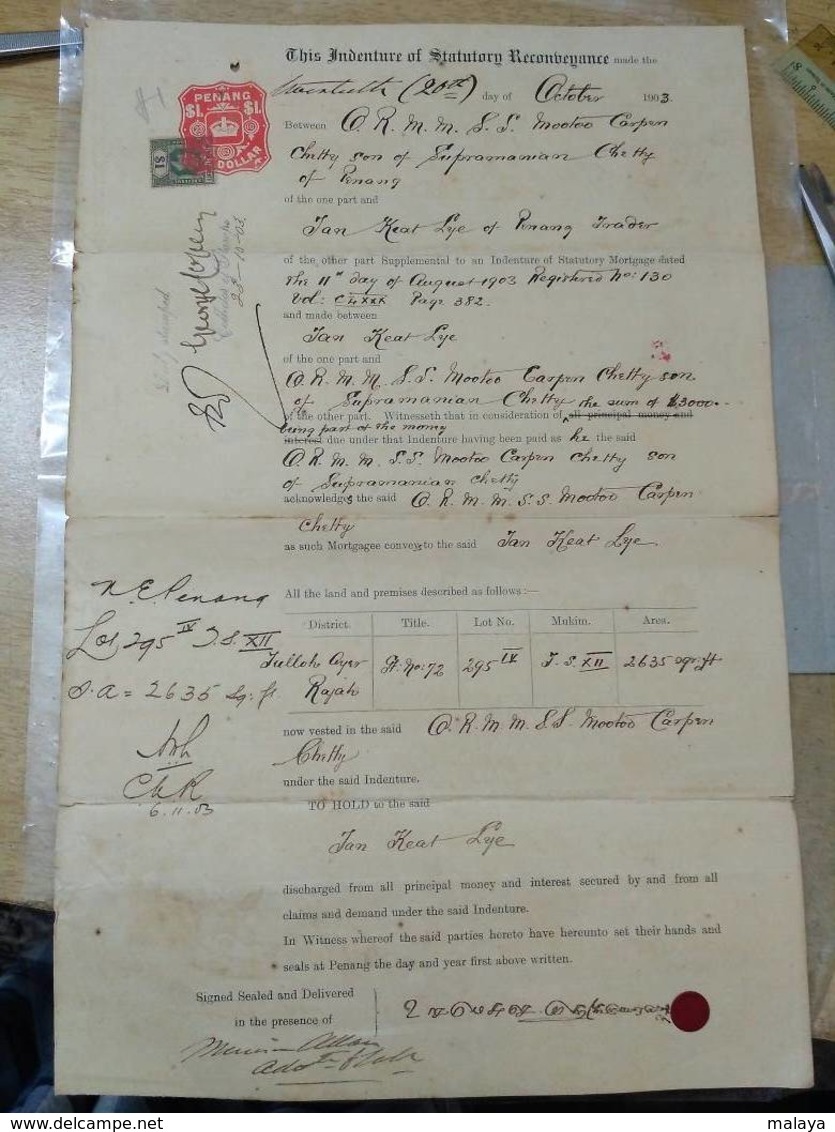 This Indenture of Statutory Reconveyance made the
(20th) day of October 1903.
PENANG
$1. $1.
DOLLAR
$1
Between O. R. M. M. S. S. Mootoo Carpen
Chetty son of Supramanian Chetty
of Penang
of the one part and
Tan Keat Lye of Penang Trader
of the other part Supplemental to an Indenture of Statutory Mortgage dated
the 11th day of August 1903 Registered No: 130
Vol: Page 382.
and made between
Tan Keat Lye
of the one part and
O. R. M. M. S. S. Mootoo Carpen Chetty son
of Supramanian Chetty the sum of $3000.-
of the other part. Witnesseth that in consideration of all principal money and
being part of the money
interest due under that Indenture having been paid as he the said
O. R. M. M. S. S. Mootoo Carpen Chetty son
of Supramanian Chetty
acknowledges the said O. R. M. M. S. S. Mootoo Carpen
Chetty
as such Mortgagee conveys to the said Tan Keat Lye
N. E. Penang
Lot 295 IV T. S. XII
S. a = 2635 Sq: ft.
6.11.03
All the land and premises described as follows:—
District. Title. Lot No. Mukim. Area.
Tulloh Ayer Rajah Gt. No: 72 295 IV T. S. XII 2635 sqr: ft
now vested in the said O. R. M. M. S. S. Mootoo Carpen
Chetty
under the said Indenture.
TO HOLD to the said
Tan Keat Lye
discharged from all principal money and interest secured by and from all
claims and demand under the said Indenture.
In Witness whereof the said parties hereto have hereunto set their hands and
seals at Penang the day and year first above written.
Signed Sealed and Delivered
in the presence of
malaya